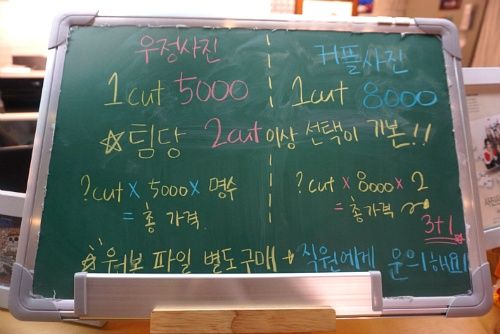 우정사진
커플사진
1cut 5000
1cut 8000
☆팀당 2cut이상 선택이 기본!!
?cut x 5000 x 명수
= 총 가격
?cut x 8000 x 2
= 총가격
3+1
☆원보 파일 별도구매 → 직원에게 문의해요!